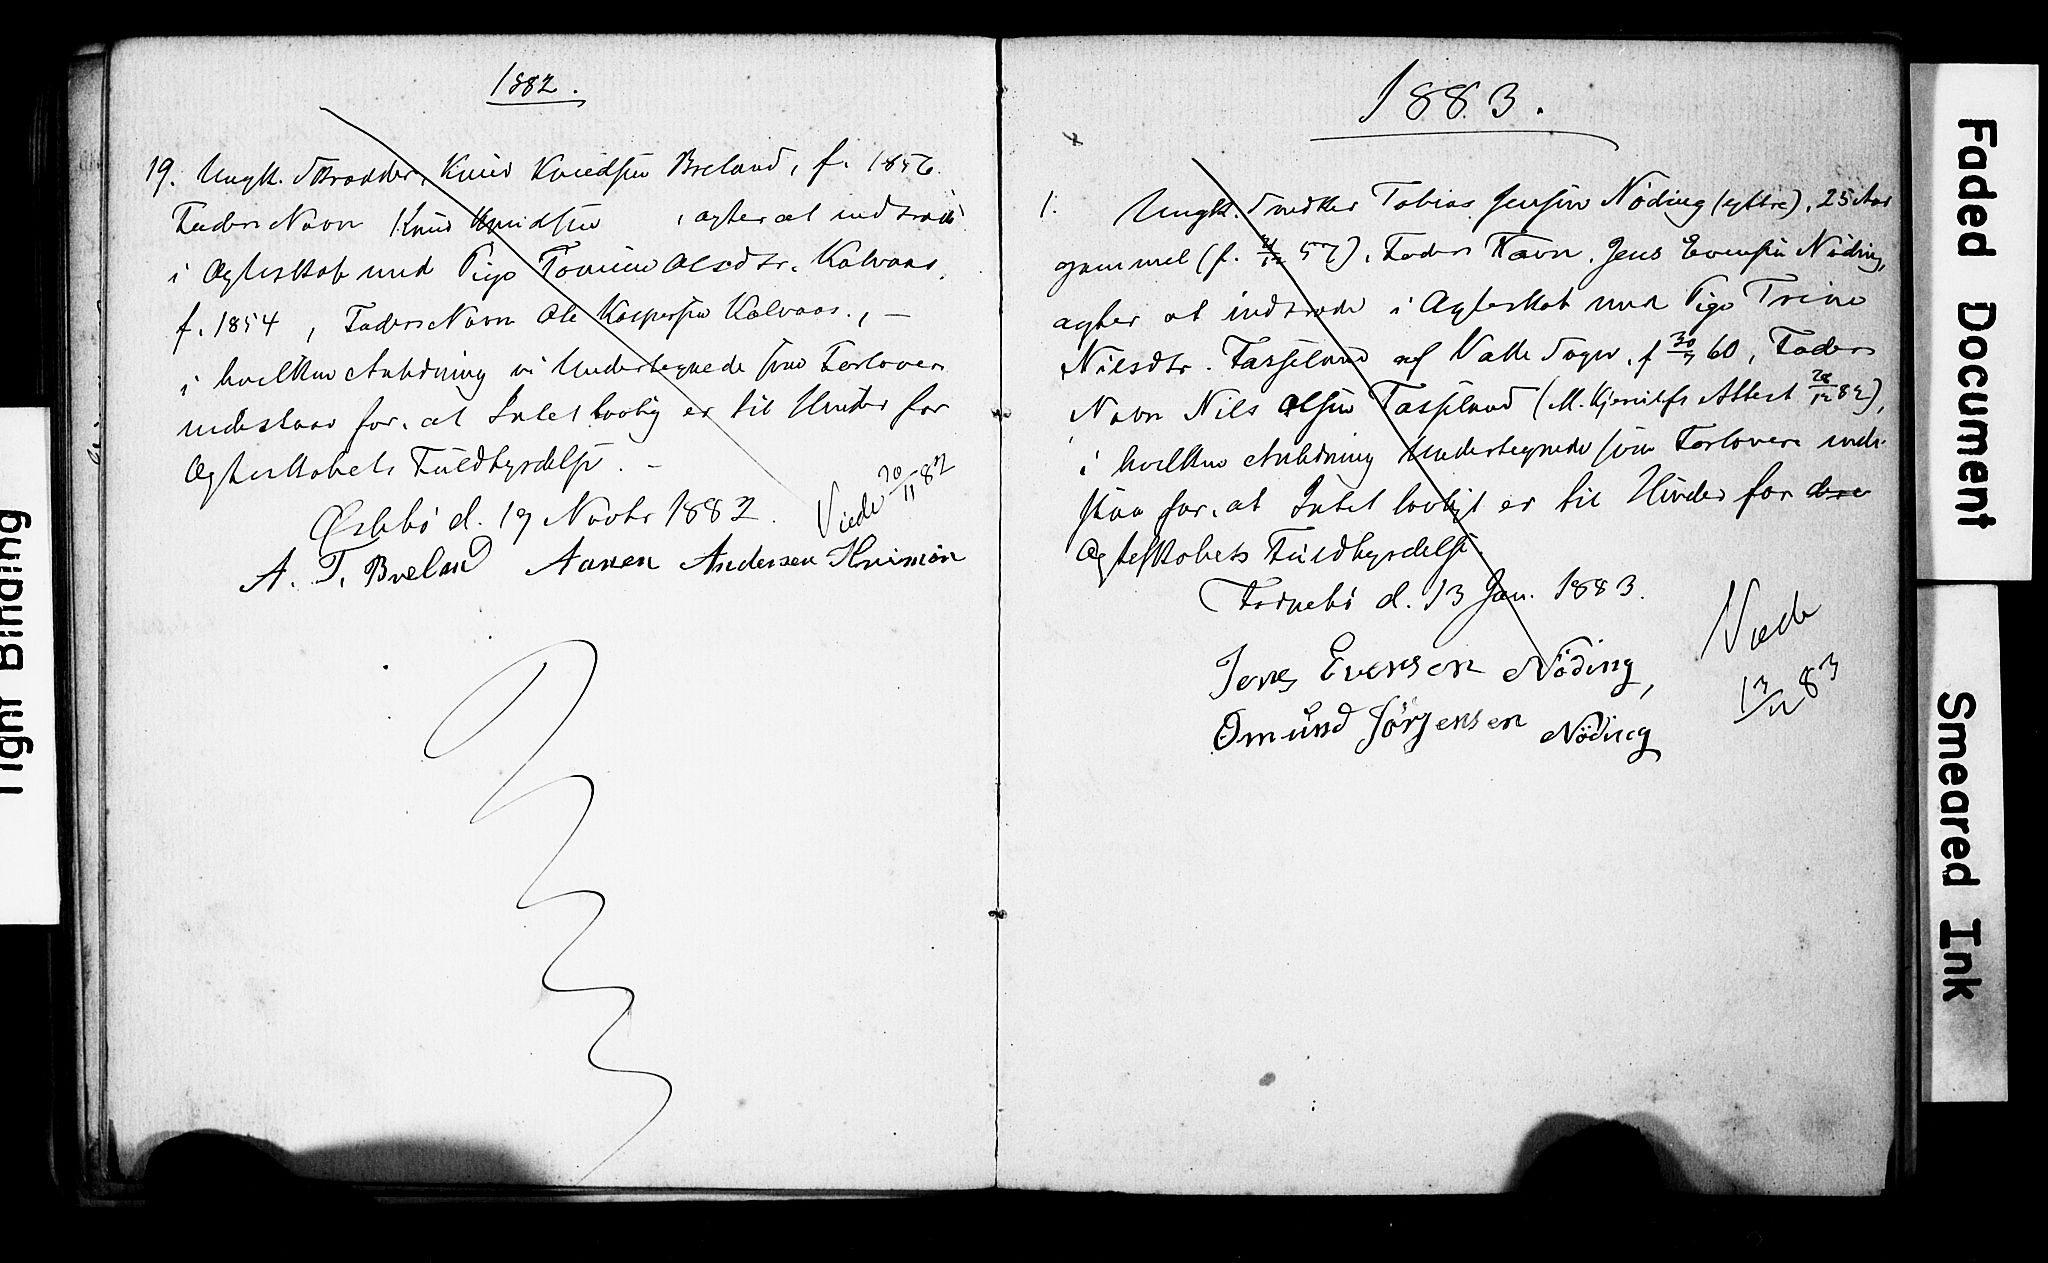 1882.
19. Ungk. Skrædder, Knud Knudsen Breland, f. 1856.
Faders Navn Knud Knudsen , agter at indtræde
i Ægteskab med Pige Tomine Olsdtr. Kalvaas,
f. 1854 , Faders Navn Ole Kaspersen Kalvaas., –
i hvilken Anledning vi Undertegnede som Forlovere
indestaar for, at Intet lovlig er til Hinder for
Ægteskabets Fuldbyrdelse. –
d. 19 Novbr 1882.
Viede 20/11 82
A. T. Breland Aanen Andersen
1883.
1. Ungk. Snedker Tobias Jensen Nöding (yttre), 25 Aar
gammel (f. 57), Faders Navn Jens Evensen Nöding,
agter at indtræde i Ægteskab med Pige Trine
Nilsdtr. Fassland af Valle Sogn, f 30/9 60, Faders
Navn Nils Olsen Fassland (M. Attest 28/12 82),
i hvilken Anledning Undertegnede som Forlovere inde-
staa for, at Intet lovligt er til Hinder for dere
Ægteskabets Fuldbyrdelse.
d. 13 Jan. 1883.
Jens Evensen Nöding,
Omund Jörgensen Nöding
Viede
13/ 83
Tight Binding
Faded Document
Smeared Ink